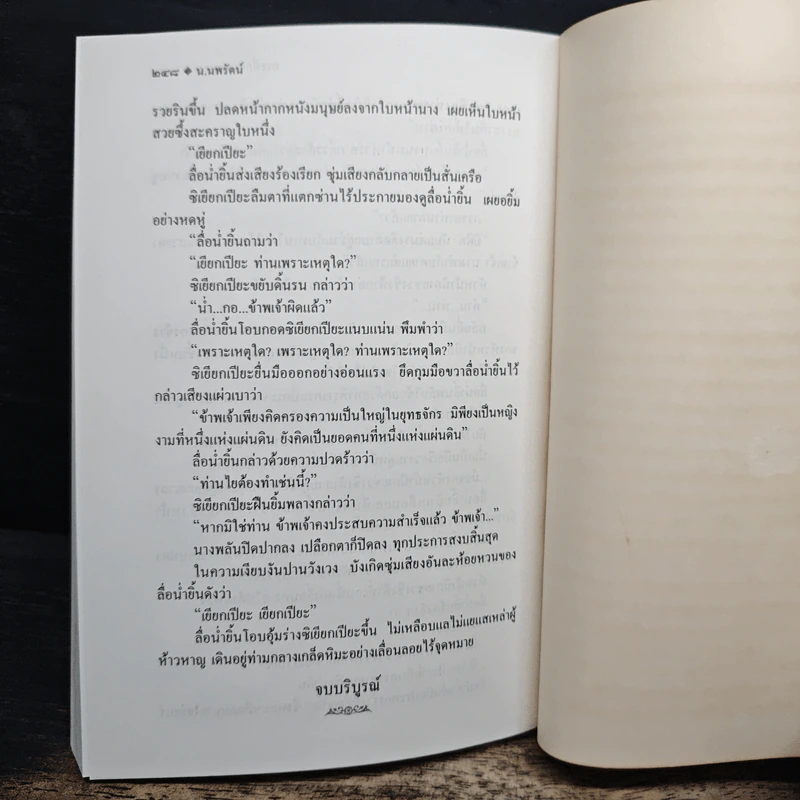 ๒๔๘ ◆ น.นพรัตน์
รวยรินขึ้น ปลดหน้ากากหนังมนุษย์ลงจากใบหน้านาง เผยเห็นใบหน้า
สวยซึ้งสะคราญใบหนึ่ง
“เยียกเปียะ”
ลื่อน่ำยิ้นส่งเสียงร้องเรียก ซุ่มเสียงกลับกลายเป็นสั่นเครือ
ซิเยียกเปียะลืมตาที่แตกซ่านไร้ประกายมองดูลื่อน่ำยิ้น เผยอยิ้ม
อย่างหดหู่
“ลื่อน่ำยิ้นถามว่า
“เยียกเปียะ ท่านเพราะเหตุใด?”
ซิเยียกเปียะขยับดิ้นรน กล่าวว่า
“น่ำ...กอ...ข้าพเจ้าผิดแล้ว”
ลื่อน่ำยิ้นโอบกอดซิเยียกเปียะแนบแน่น พึมพำว่า
“เพราะเหตุใด? เพราะเหตุใด? ท่านเพราะเหตุใด?”
ซิเยียกเปียะยื่นมือออกอย่างอ่อนแรง ยึดกุมมือขวาลื่อน่ำยิ้นไว้
กล่าวเสียงแผ่วเบาว่า
“ข้าพเจ้าเพียงคิดครองความเป็นใหญ่ในยุทธจักร มิพียงเป็นหญิง
งามที่หนึ่งแห่งแผ่นดิน ยังคิดเป็นยอดคนที่หนึ่งแห่งแผ่นดิน”
ลื่อน่ำยิ้นกล่าวด้วยความปวดร้าวว่า
“ท่านไยต้องทำเช่นนี้?”
ซิเยียกเปียะฝืนยิ้มพลางกล่าวว่า
“หากมิใช่ท่าน ข้าพเจ้าคงประสบความสำเร็จแล้ว ข้าพเจ้า...”
นางพลันปิดปากลง เปลือกตาก็ปิดลง ทุกประการสงบสิ้นสุด
ในความเงียบงันปานวังเวง บังเกิดซุ่มเสียงอันละห้อยหวนของ
ลื่อน่ำยิ้นดังว่า
“เยียกเปียะ เยียกเปียะ”
ลื่อน่ำยิ้นโอบอุ้มร่างซิเยียกเปียะขึ้น ไม่เหลือบแลไม่แยแสเหล่าผู้
ห้าวหาญ เดินอยู่ท่ามกลางเกล็ดหิมะอย่างเลื่อนลอยไร้จุดหมาย
จบบริบูรณ์